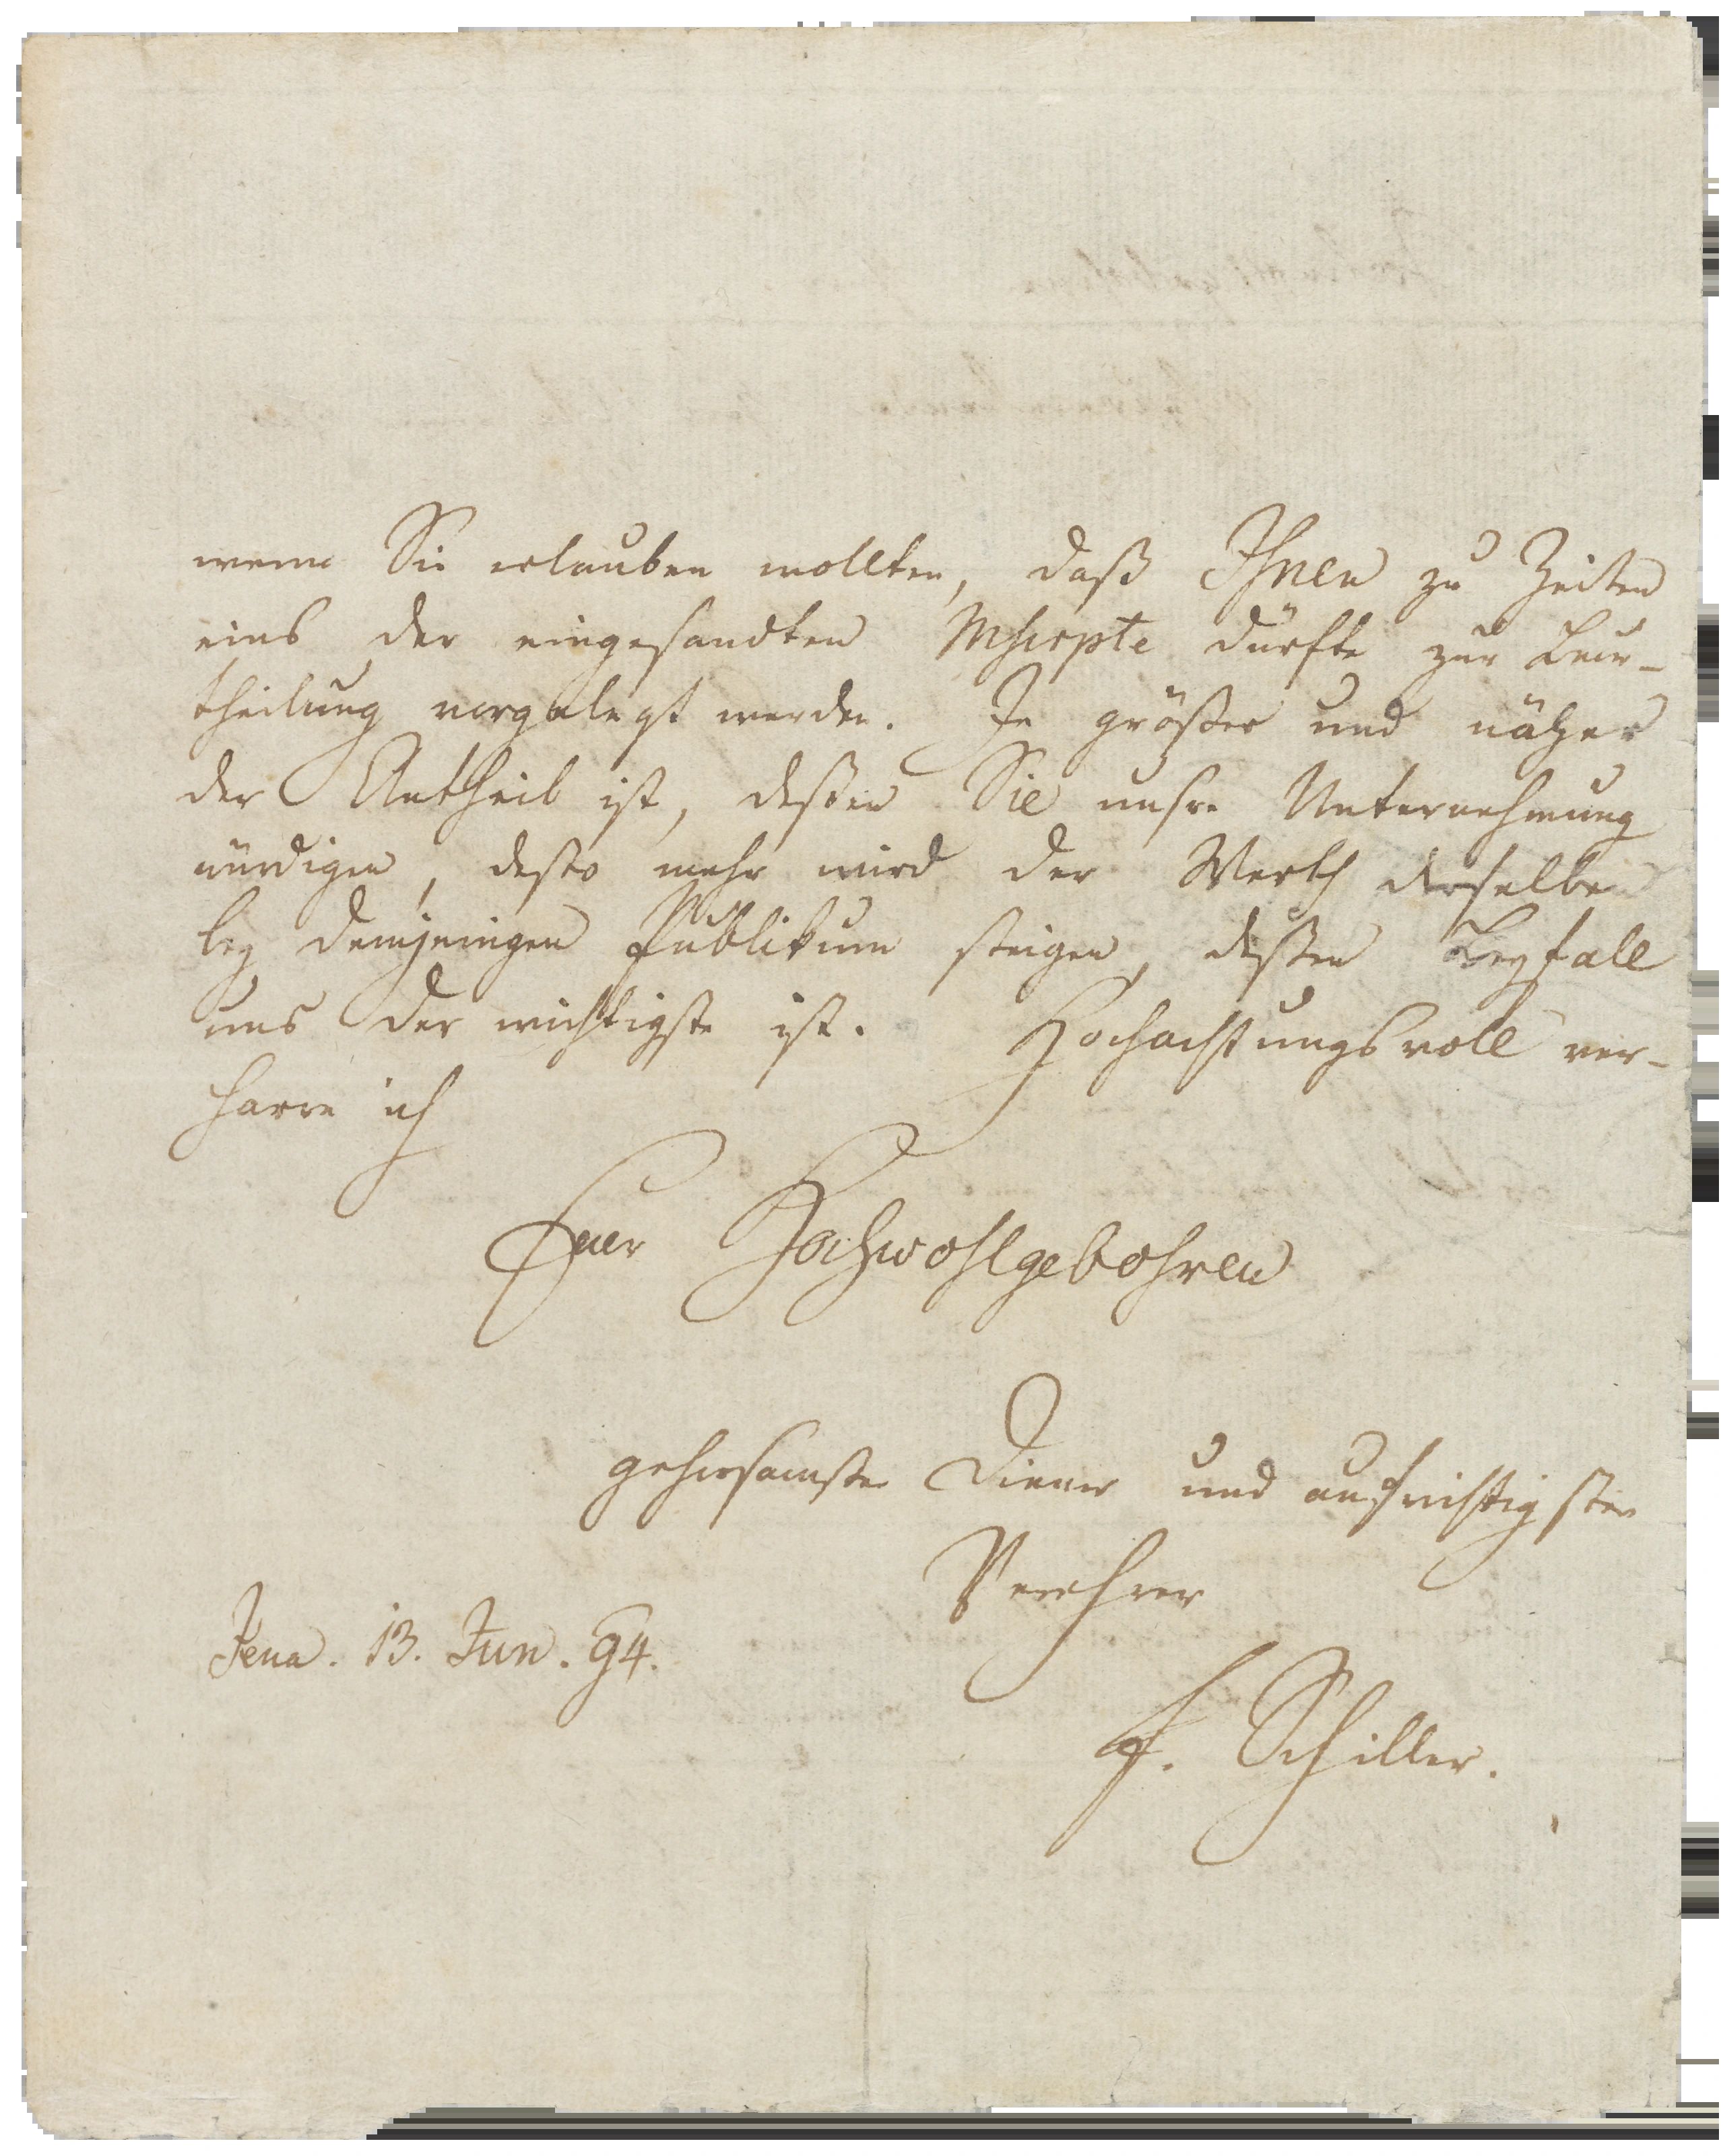 wenn Sie erlauben wollten, daß Ihnen zu Zeiten
eins der eingesandten Mscrpte dürfte zur Beur-
theilung vorgelegt werden. Je größer und näher
der Antheil ist, deßen Sie unsre Unternehmung
würdigen, desto mehr wird der Werth derselben
bey demjenigen Publikum steigen, deßen Beyfall
uns der wichtigste ist. Hochachtungsvoll ver-
harre ich
Euer Hochwohlgebohren
gehorsamster Diener und aufrichtigster
Verehrer
Jena. 13. Jun. 94.
F. Schiller.